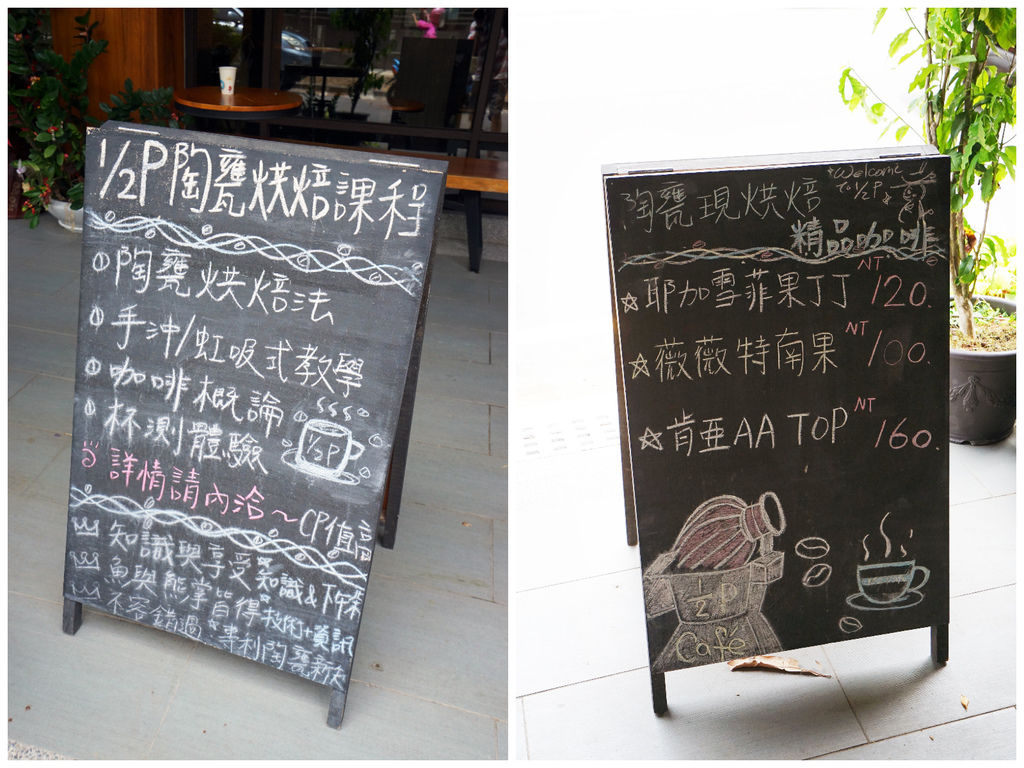 1/2P陶甕烘焙課程
陶甕烘焙法
手沖/虹吸式教學
咖啡概論
杯測體驗
1/2P
詳情請內洽~
CP值高
知識與享受
魚與熊掌皆得
不容錯過
知識&下午茶
技術+資訊
專利陶甕新知
陶甕現烘焙
Welcome
To 1/2P
精品咖啡
耶加雪菲果丁丁 NT 120.
薇薇特南果 NT 100.
肯亞AA TOP NT 160.
1/2 P
Café